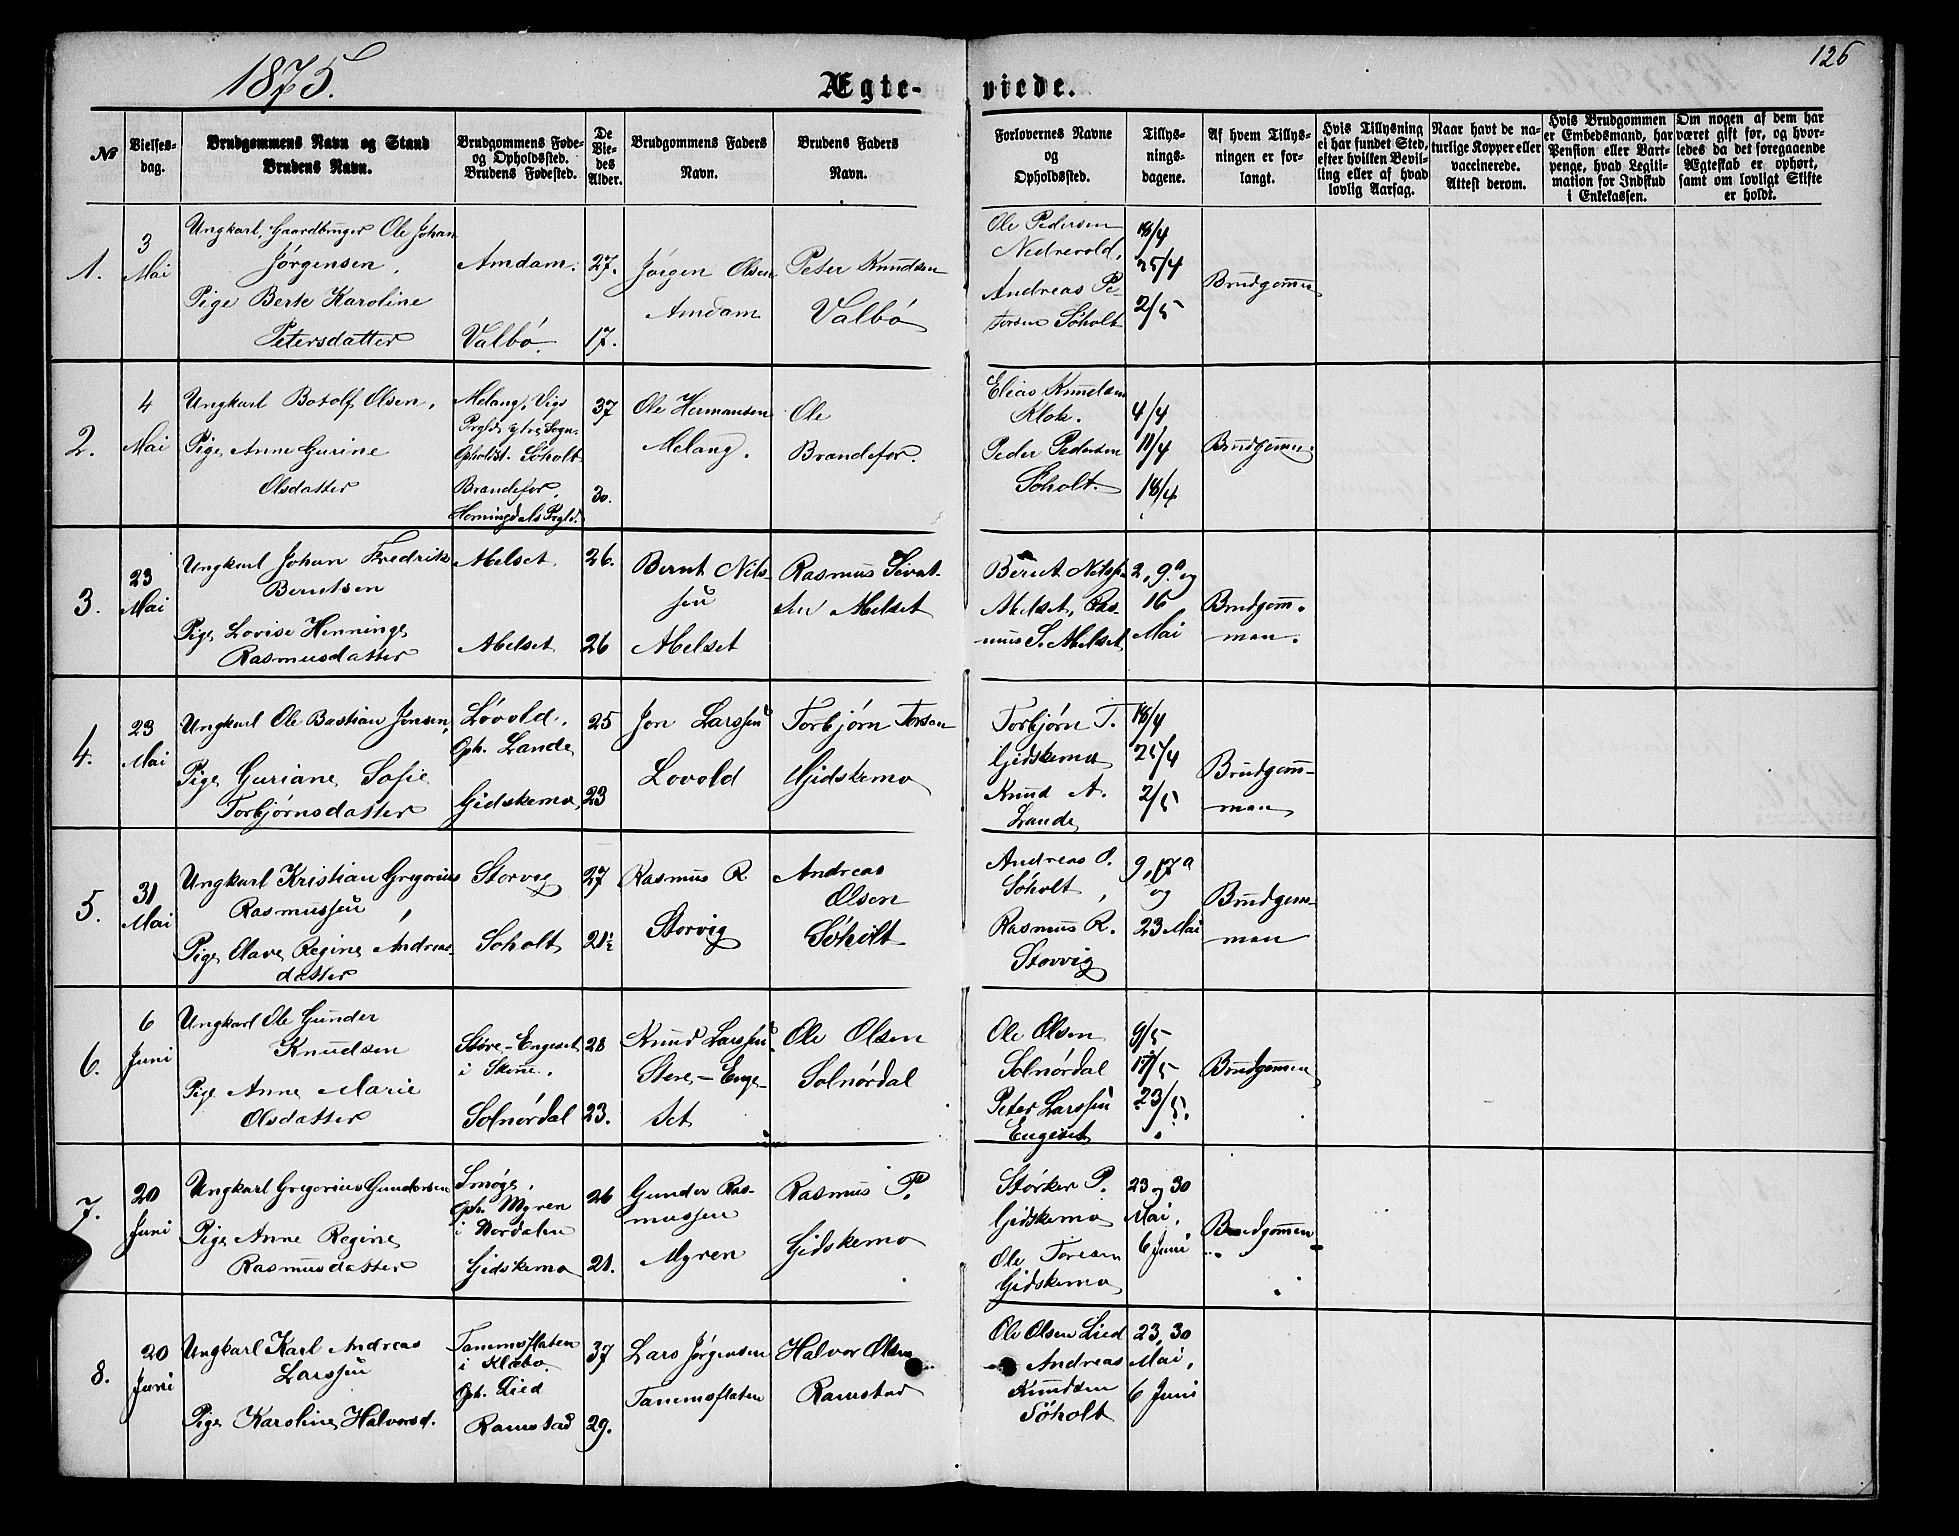 1875.
Ægte-
viede.
126
No
Vielses-
dag.
Brudgommens Navn og Stand
Brudens Navn.
Brudgommens Føde-
og Opholdssted.
Brudens Fødested.
De
Vie-
des
Alder.
Brudgommens Faders
Navn.
Brudens Faders
Navn.
Forlovernes Navne
og
Opholdssted.
Tillys-
nings-
dagene.
Af hvem Tillys-
ningen er for-
langt.
Hvis Tillysning
ei har fundet Sted,
efter hvilken Bevil-
ling eller af hvad
lovlig Aarsag.
Naar havt de na-
turlige Kopper eller
vaccinerede.
Attest derom.
Hvis Brudgommen
er Embedsmand, har
Pension eller Vart-
penge, hvad Legiti-
mation for Indskud
i Enkekassen.
Om nogen af dem har
været gift før, og hvor-
ledes da det foregaaende
Ægteskab er ophørt,
samt om lovligt Skifte
er holdt.
1.
3
Mai
Ungkarl, Gaardbruger Ole Johan
Jørgensen,
Pige Berte Karoline
Petersdatter
Amdam.
Valbø.
27.
17.
Jørgen Olsen
Amdam
Peter Knudsen
Valbø
Ole Pedersen
Nedrevold,
Andreas Pe-
tersen Søholt
18/4
25/4
2/5
Brudgommen
2.
4
Mai
Ungkarl Botolf Olsen,
Pige Anne Gurine
Olsdatter
Melang, Vigs
Prgld. ytre Sogn.
Opholdst. Søholt
Brandefor,
Horningdals Prgld.
37
30.
Ole Hermansen
Melang.
Ole
Brandefor.
Elias Knudsen
Klok.
Peder Pedersen
Søholt.
4/4
11/4
18/4
Brudgommen.
3.
23
Mai
Ungkarl Johan Fredrik
Berntsen
Pige Lovise Henninge
Rasmusdatter
Abelset
Abelset
26.
26
Bernt Nils-
sen
Abelset
Rasmus Sivat-
sen Abelset
Bernt Nilssen
Abelset, Ras-
mus S. Abelset
2, 9. og
16
Mai
Brudgom-
man.
4.
23
Mai
Ungkarl Ole Bastian Jonsen,
Pige Guriane Sofie
Torbjørnsdatter
Løvold.
Oph. Lande
Gidskemo
25
23
Jon Larssen
Lovold
Torbjørn Torsen
Gidskemo
Torbjørn T.
Gidskemo
Knud A.
Lande
18/4
25/4
2/5
Brudgom-
man
5.
31
Mai
Ungkarl Kristian Gregorius
Rasmussen
Pige Olave Regine Andreas-
datter
Storvig
Soholt
27
21½
Rasmus R.
Storvig
Andreas
Olsen
Søholt
Andreas O.
Søholt,
Rasmus R.
Storvig
9, 17
og
23 Mai
Brudgom-
man
6.
6
Juni
Ungkarl Ole Gunder
Knudsen
Pige Anne Marie
Olsdatter
Støre-Engeset
i Skoue.
Solnørdal
28
23.
Knud Larssen
Stere-Enge-
set
Ole Olsen
Solnørdal
Ole Olsen
Solnørdal
Peter Larssen
Engeset
9/5
17/5
23/5.
Brudgommen
7.
20
Juni
Ungkarl Gregorius Gundersen
Pige Anne Regine
Rasmusdatter
Smøge,
Oph. Myren
i Nordalen
Gidskemo
26
21.
Gunder Ras-
mussen
Myren
Rasmus P.
Gidskemo
Størker P.
Gidskemo
Ole Toresen
Gidskemo
23 og 30
Mai,
6 Juni
Brudgommen
8.
20
Juni
Ungkarl Karl Andreas
Larssen
Pige Karoline Halvorsd.
Tanemsflaten
i Klæbo
Oph. Lied
Ramstad
37
29.
Lars Jørgensen
Tanemsflaten
Halvor Olsen
Ramstad
Ole Olsen Lied
Andreas
Knudsen
Søholt
23, 30
Mai,
6 Juni